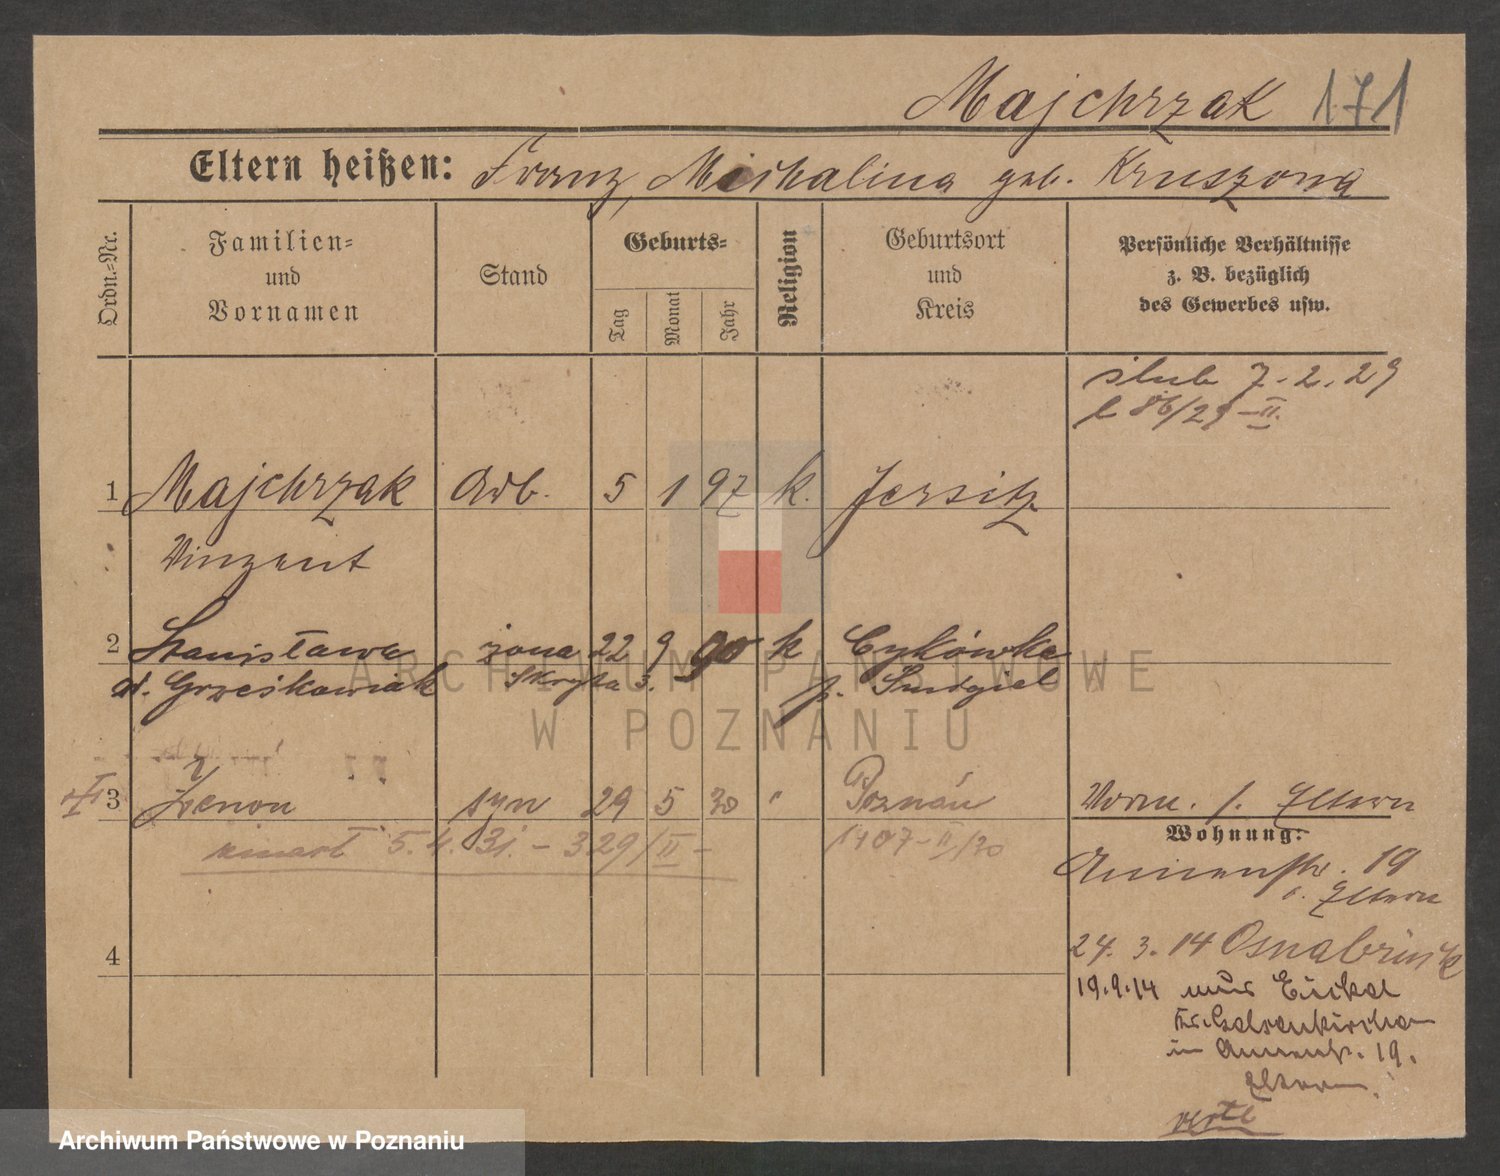 Majchrzak 171
Eltern heißen: Franz, Michalina geb. Kruszona
Ordn.-Nr.
Familien-
und
Vornamen
Stand
Geburts-
Tag
Monat
Jahr
Religion
Geburtsort
und
Kreis
Persönliche Verhältnisse
z. B. bezüglich
des Gewerbes usw.
ślub 7.2.29
l 86/29-II.
1 Majchrzak Arb. 5 1 97 k. Jersitz
Vinzent
2 Stanisława żona 22 9 90 k Cykówko
d. Grześkowiak
3 Zenon syn 29 5 30 " Poznań
Vorm. s. Eltern
zmarł 5.4.31. - 329/II -
1407-II/30
Wohnung:
Annenstr. 19
s. Eltern
4
24.3.14 Osnabrück
19.9.14 aus Eickel
Kr. Gelsenkirchen
in Annenstr. 19.
Eltern
verte
ARCHIWUM PAŃSTWOWE
W POZNANIU
Archiwum Państwowe w Poznaniu